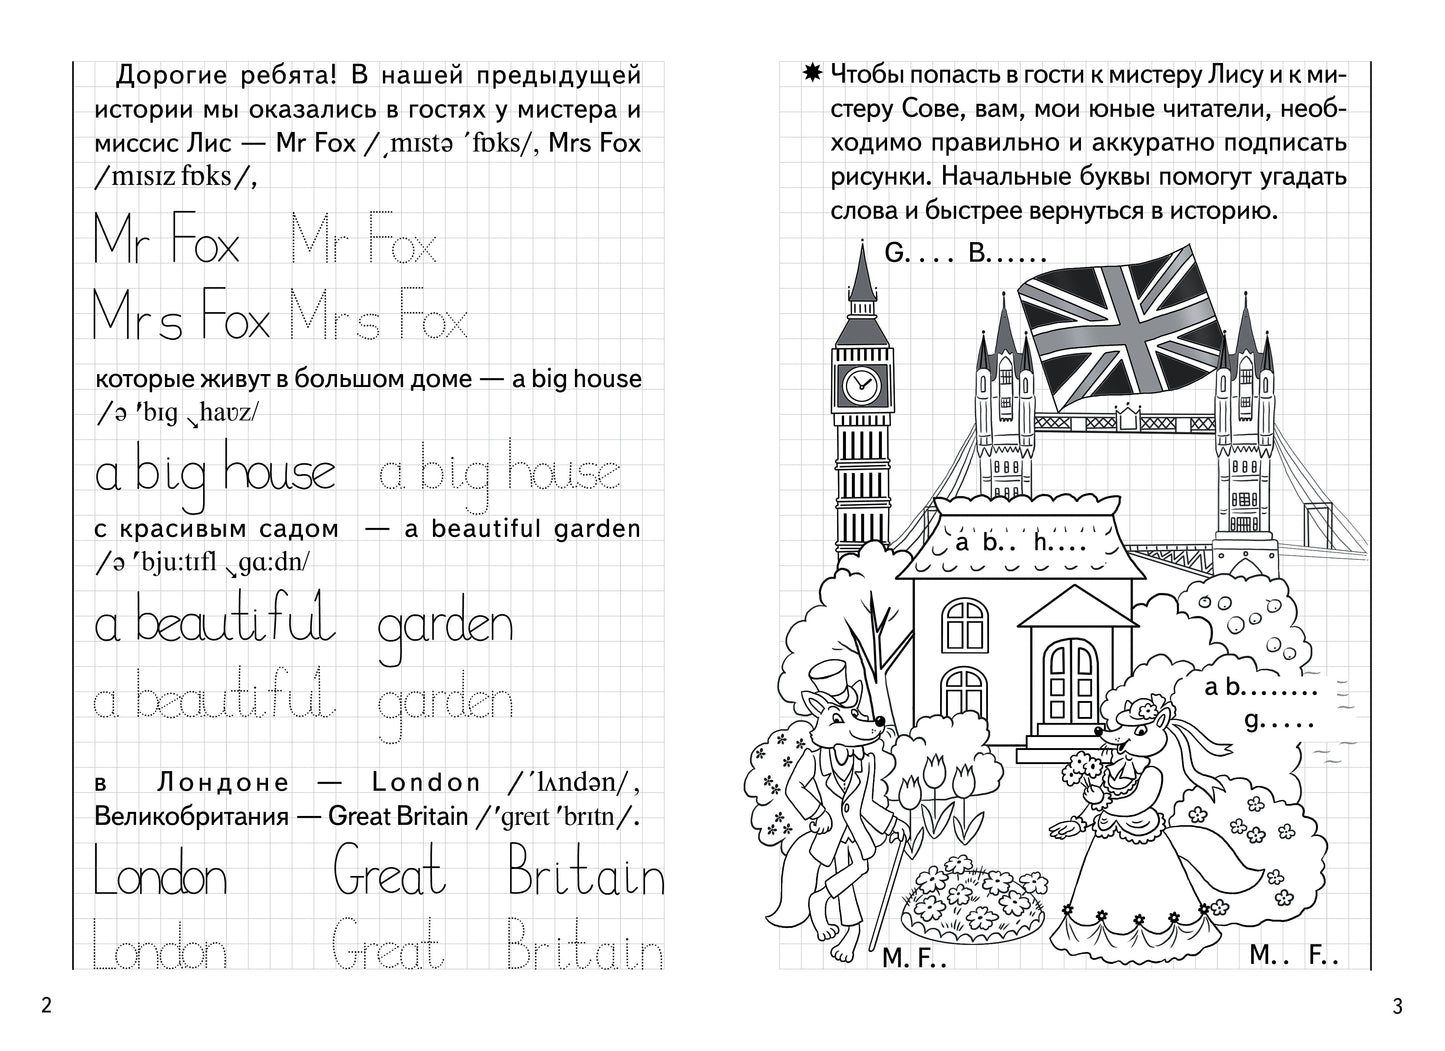 Дорогие ребята! В нашей предыдущей
истории мы оказались в гостях у мистера и
миссис Лис — Mr Fox /ˌmɪstə ˊfɒks/, Mrs Fox
/mɪsɪz fɒks/,
Mr Fox Mr Fox
Mrs Fox Mrs Fox
которые живут в большом доме — a big house
/ə ʹbɪg ↘haʋz/
a big house a big house
с красивым садом — a beautiful garden
/ə ʹbju:tɪfl ↘gɑ:dn/
a beautiful garden
a beautiful garden
в Лондоне — London /ˊlʌndən/,
Великобритания — Great Britain /ʹgreɪt ʹbrɪtn/.
London Great Britain
London Great Britain
2
✸ Чтобы попасть в гости к мистеру Лису и к ми-
стеру Сове, вам, мои юные читатели, необ-
ходимо правильно и аккуратно подписать
рисунки. Начальные буквы помогут угадать
слова и быстрее вернуться в историю.
G. . . . B......
a b.. h....
a b........
g.....
M. F..
M.. F..
3